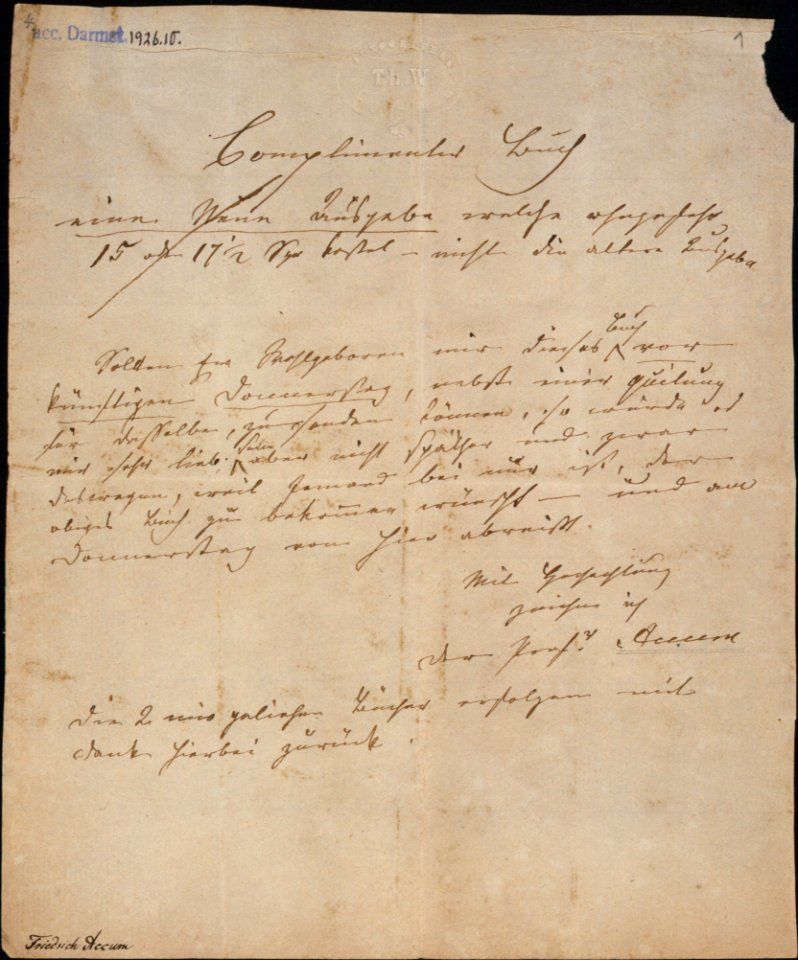 acc. Darmst. 1926.10.
1
Th. W
Complimenter Buch
eine Neue Ausgabe welche ohngefehr
15 oder 17 1/2 Sgr kostet – nicht die altere Ausgabe
Sollten Ew Wohlgeboren mir dieses Buch vor
künftigen Donnerstag, nebst einer Quitung
für dasselbe, zu senden können, so würde es
mir sehr lieb sein aber nicht späther und zwar
deswegen, weil Jemand bei mir ist, der
obiges Buch zu bekommen wünscht – und am
Donnerstag von hier abreist.
Mit Hochachtung
zeichne ich
der Profr. Accum
Die 2 mir geliehen Bücher erfolgen mit
dank hierbei zurück.
Friedrich Accum